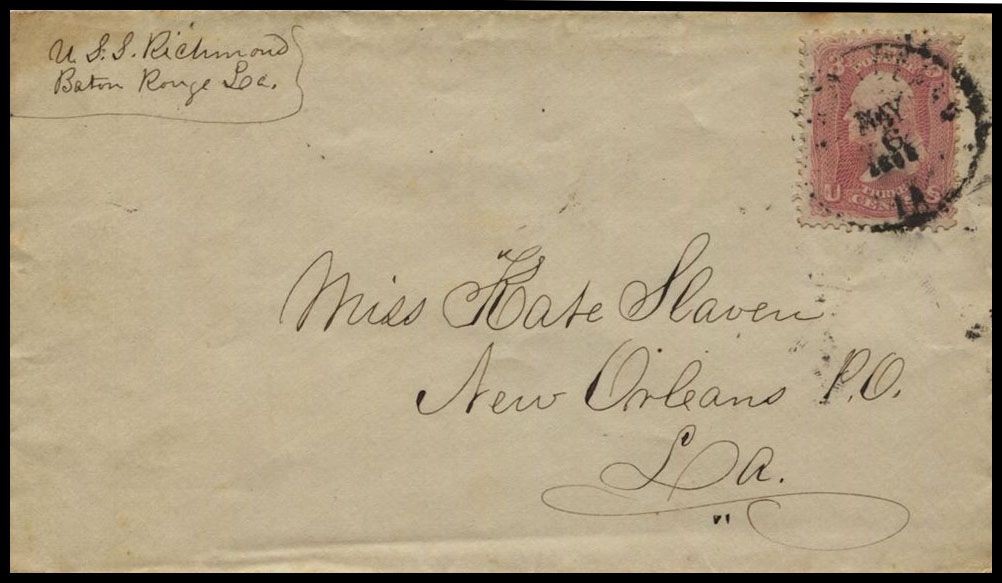 U.S.S. Richmond
Baton Rouge La.
3 3
MAY
6
LA
U THREE S
CENTS
Miss Kate Slaven
New Orleans P.O.
La.
"